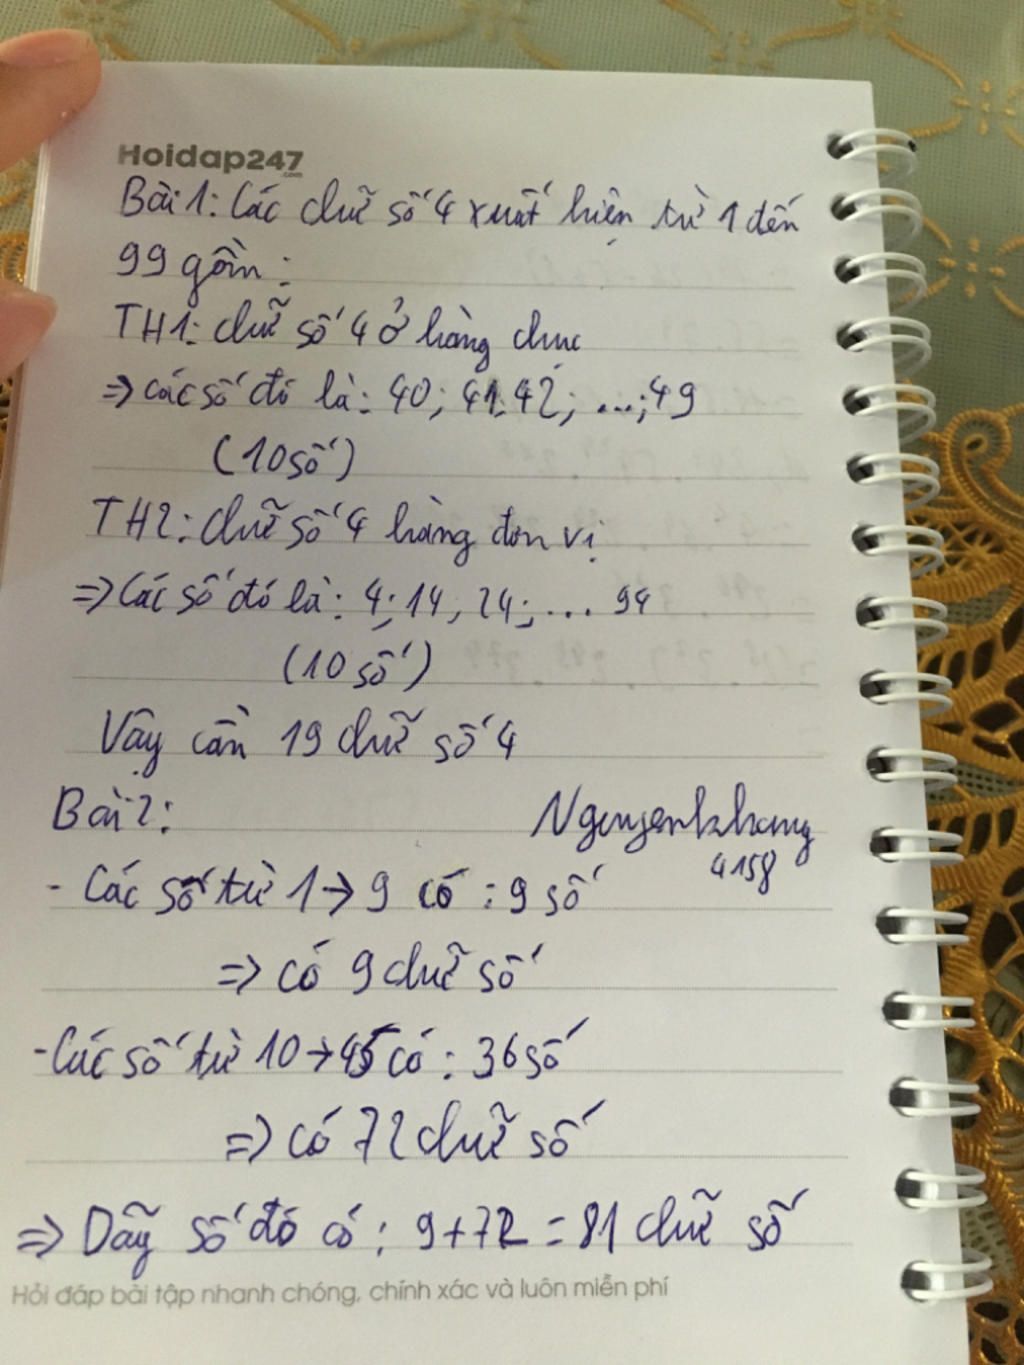 Hoidap247
.com
Bài 1: Các chữ số 4 xuất hiện từ 1 đến
99 gồm:
TH1: chữ số 4 ở hàng chục
=> các số đó là: 40; 41, 42; ...; 49
(10 số)
TH2: chữ số 4 hàng đơn vị
=> Các số đó là: 4; 14, 24; ... 94
(10 số)
Vậy cần 19 chữ số 4
Bài 2:
Nguyenkhang
4158
- Các số từ 1 → 9 có : 9 số
=> có 9 chữ số
- Các số từ 10 → 45 có : 36 số
=> có 72 chữ số
=> Dãy số đó có : 9 + 72 = 81 chữ số
Hỏi đáp bài tập nhanh chóng, chính xác và luôn miễn phí